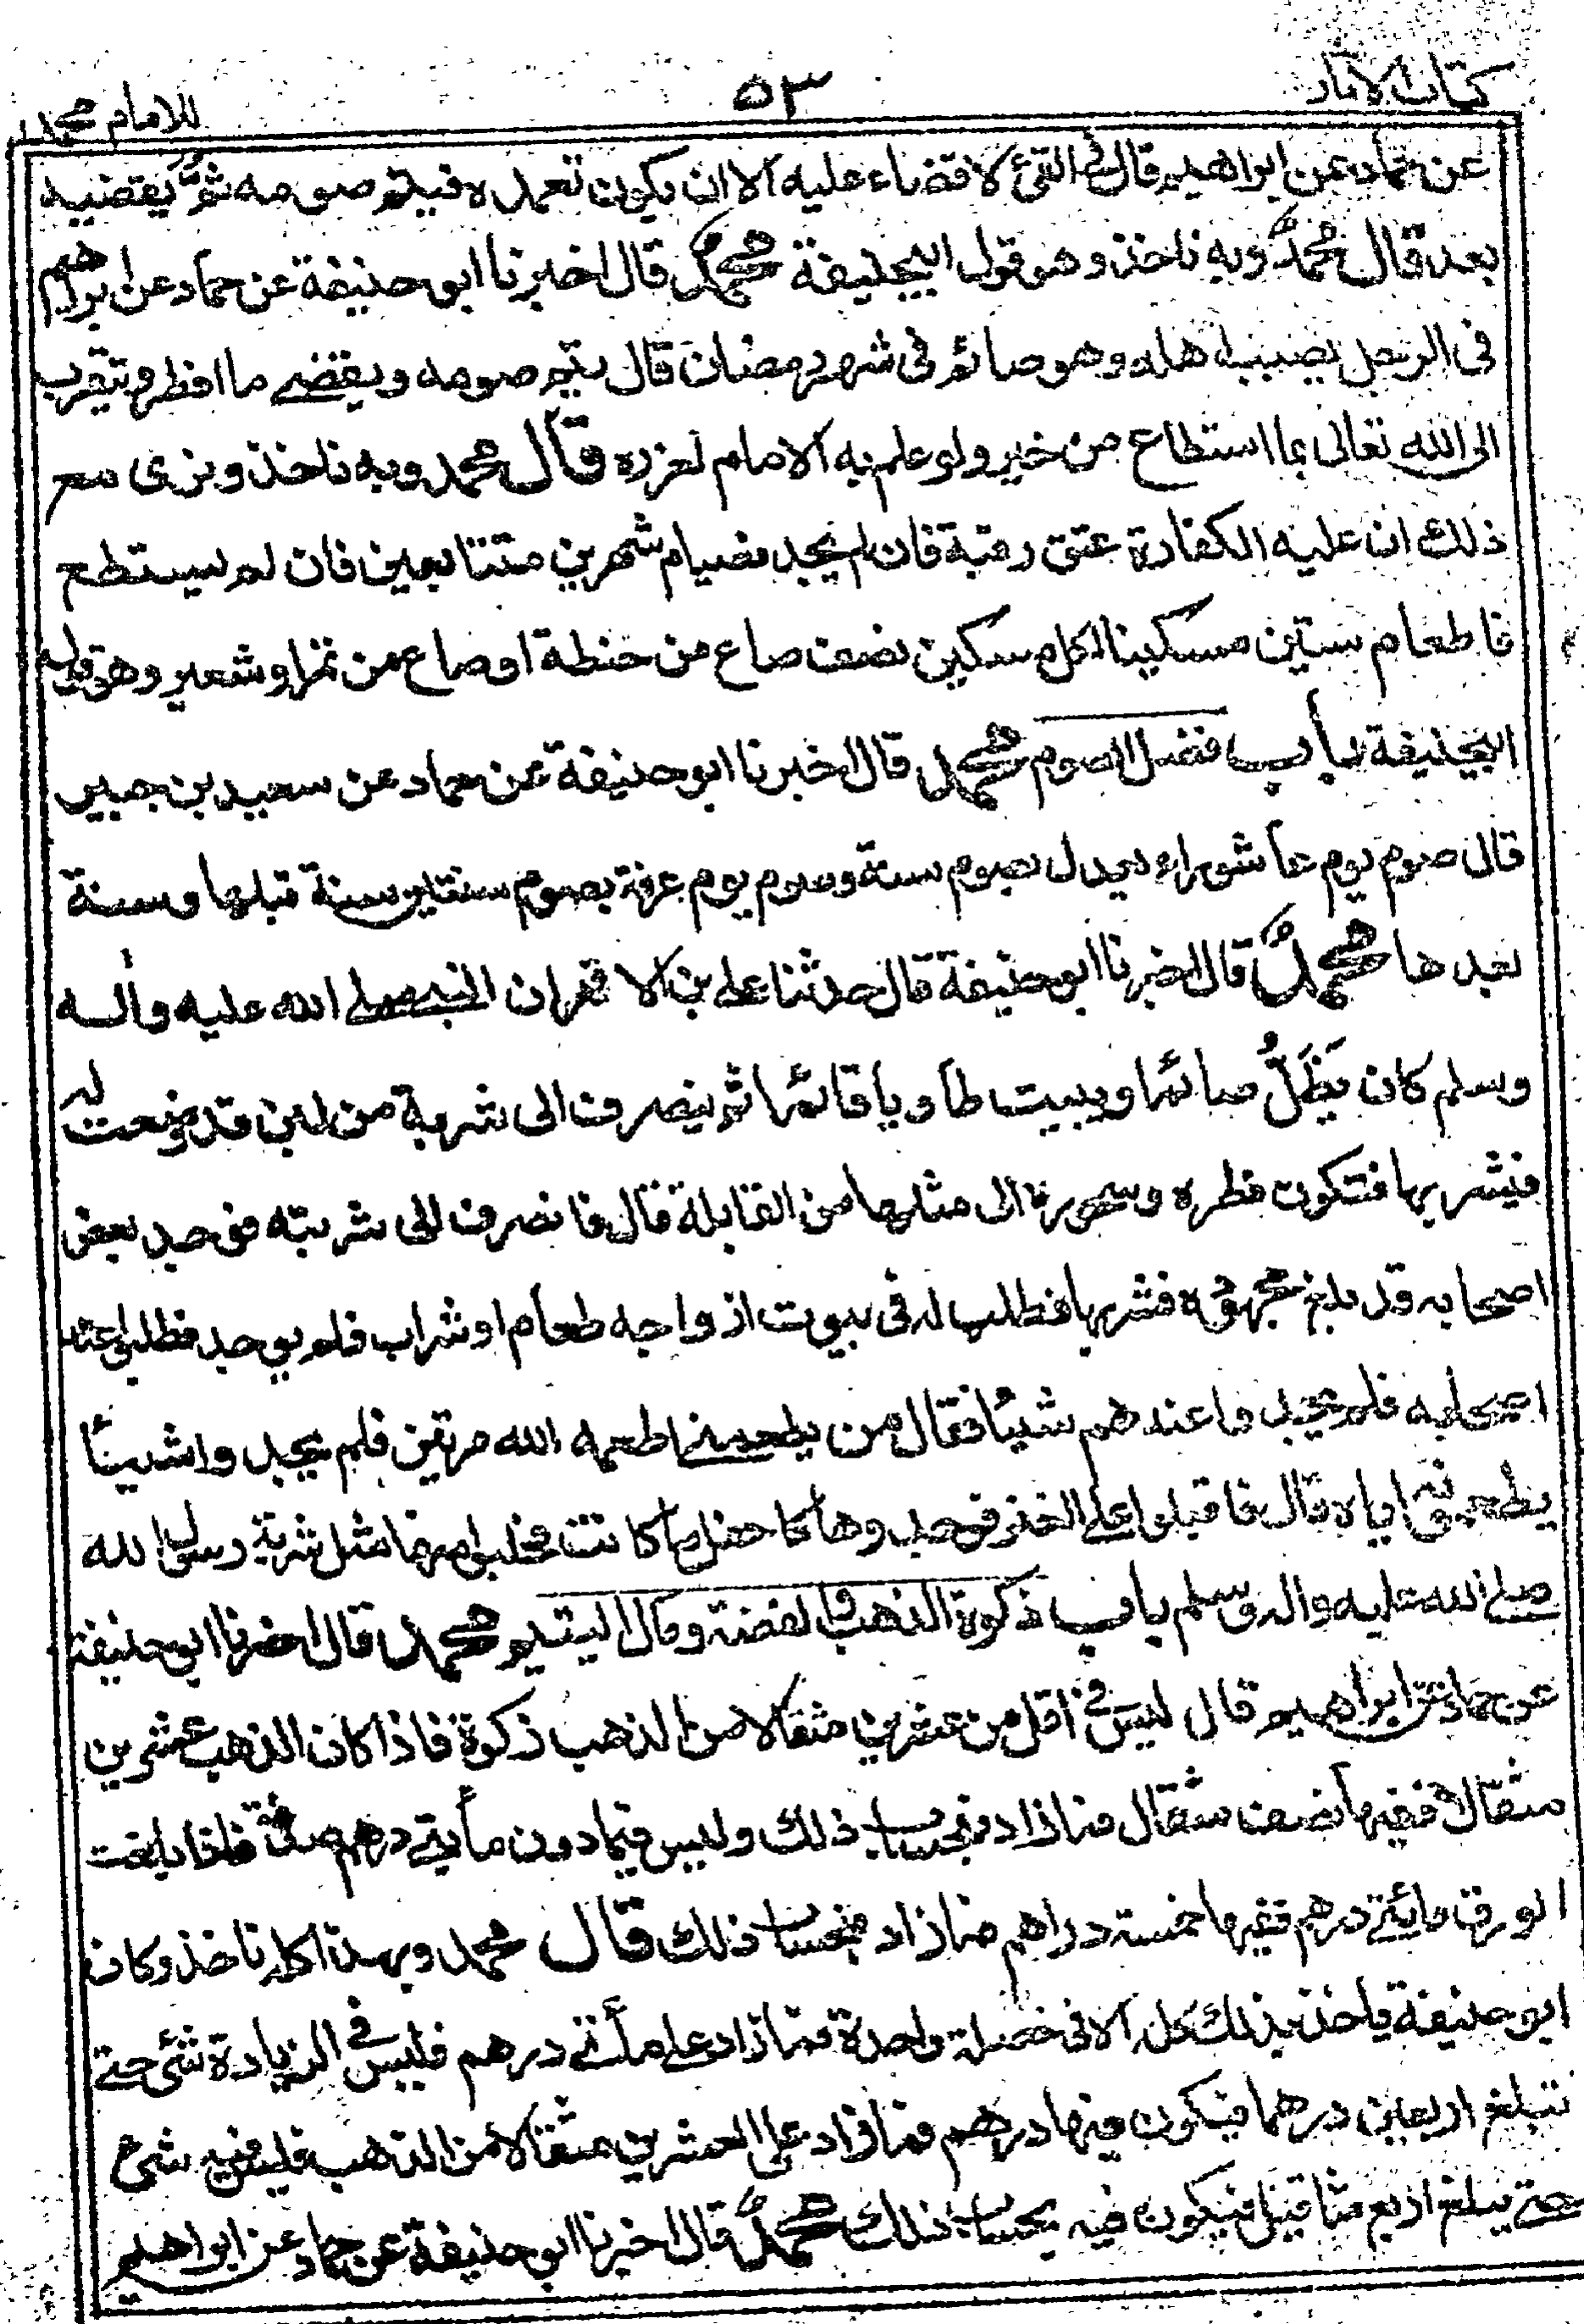 كتاب الاثار ٥٣ للامام محمد
عن حماد عن ابراهيم قال في القئ لا قضاء عليه الا ان يكون تعمده فيتم صومه ثم يقضيه
بعد قال محمد وبه ناخذ وهو قول ابيحنيفة محمد قال اخبرنا ابو حنيفة عن حماد عن ابراهيم
فى الرجل يصيب اهله وهو صائم فى شهر رمضان قال يتم صومه ويقضے ما افطر ويتقرب
الى الله تعالى بما استطاع من خير ولو علم به الامام لعزره قال محمد وبه ناخذ ونرى مع
ذلك ان عليه الكفارة عتق رقبة فان لم يجد فصيام شهرين متتابعين فان لم يستطع
فاطعام ستين مسكينا لكل مسكين نصف صاع من حنطة او صاع من تمر او شعير وهو قول
ابيحنيفة باب فضل الصوم محمد قال اخبرنا ابو حنيفة عن حماد عن سعيد بن جبير
قال صوم يوم عاشوراء يعدل بصوم سنة وصوم يوم عرفة بصوم سنتين سنة قبلها وسنة
بعدها محمد قال اخبرنا ابو حنيفة قال حدثنا علے بن الاقمر ان النبے صلے الله عليه واله
وسلم كان يَظَلُّ صائما ويبيت طاويا قائما ثم ينصرف الى شربة من لبن قد وضعت له
فيشربها فتكون فطره وسحوره الى مثلها من القابلة قال فانصرف الى شربته فوجد بعض
اصحابه قد بلغ مجهوده فشربها فطلب له فى بيوت ازواجه طعام او شراب فلم يوجد فطلبوا عند
اصحابه فلم يجد ما عندهم شيئا فقال من يطعمنے اطعمه الله مرتين فلم يجدوا شيئا
يطعمونه اياه قال فاقبلوا على العنز فوجدوها كاحفل ما كانت فحلبوا منها مثل شربة رسول الله
صلے الله عليه واله وسلم باب زكوة الذهب والفضة ومال اليتيم محمد قال اخبرنا ابو حنيفة
عن حماد عن ابراهيم قال ليس في اقل من عشرين مثقالا من الذهب زكوة فاذا كان الذهب عشرين
مثقالا ففيها نصف مثقال فما زاد فبحساب ذلك وليس فيما دون مأيتے درهم صدقة فاذا بلغت
الورق مائيتے درهم ففيها خمسة دراهم فما زاد فبحساب ذلك قال محمد وبهذا كله ناخذ وكان
ابو حنيفة ياخذ بذلك كله الا فى خصلة واحدة فما زاد علے مأتے درهم فليس في الزيادة شئ حتے
تبلغ اربعين درهما فيكون فيها درهم فما زاد على العشرين مثقالا من الذهب فليس فيه شئ
حتے يبلغ اربع مثاقيل فيكون فيه بحساب ذلك محمد قال اخبرنا ابو حنيفة عن حماد عن ابراهيم